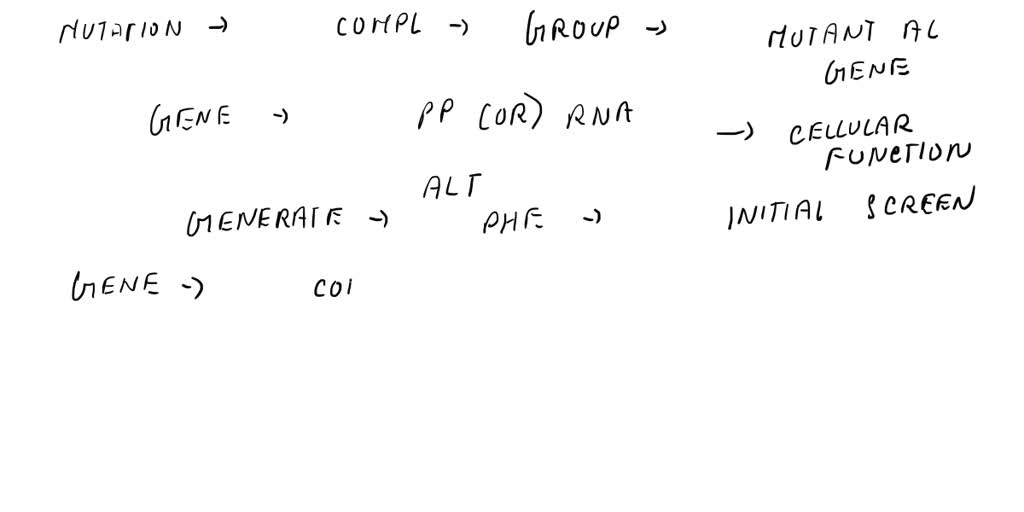 MUTATION → COMPL → GROUP → MUTANT AL
GENE
GENE → PP (OR) RNA → CELLULAR
FUNCTION
ALT
GENERATE → PHE → INITIAL SCREEN
GENE → COI